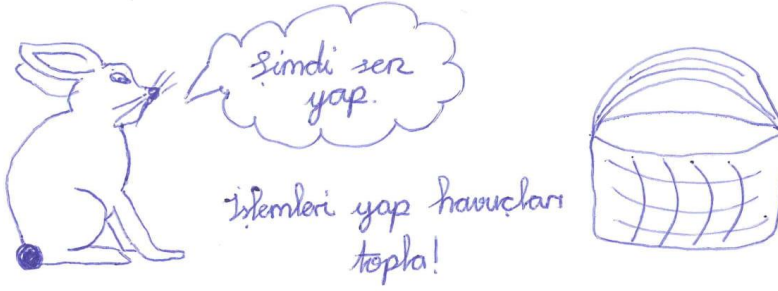 Şimdi sen
yap.
İşlemleri yap havuçları
topla!